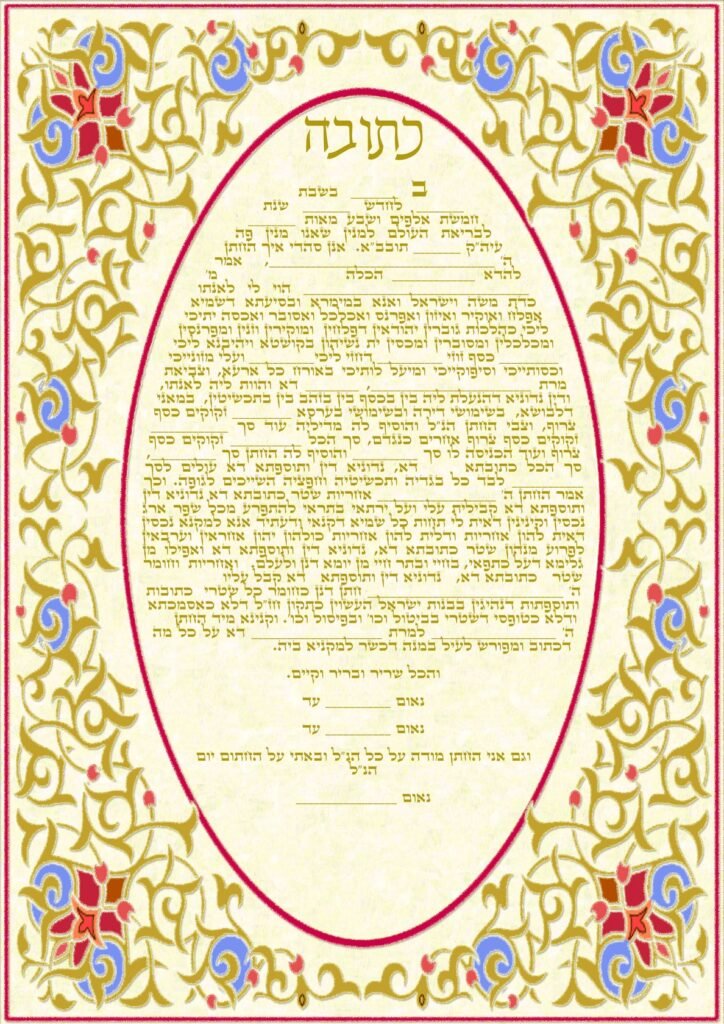 כתובה
ב _____ בשבת
_____ לחדש _____ שנת
חמשת אלפים ושבע מאות _____,
לבריאת העולם למנין שאנו מנין פה
עיה״ק _____ תובב״א. אנן סהדי איך החתן
ה׳ _____, אמר
להדא _____ הכלה _____ מ׳
_____ הוי לי לאנתו
כדת משה וישראל ואנא במימרא ובסיעתא דשמיא
אפלח ואוקיר ואיזון ואפרנס ואכלכל ואסובר ואכסה יתיכי
ליכי כהלכות גוברין יהודאין דפלחין ומוקירין וזנין ומפרנסין
ומכלכלין ומסוברין ומכסין ית נשיהון בקושטא ויהיבנא ליכי
_____ כסף זוזי _____ דחזי ליכי _____ ועלי מזונייכי
וכסותייכי וסיפוקייכי ומיעל לותיכי באורח כל ארעא, וצביאת
מרת _____, _____ דא והוות ליה לאנתו,
ודין נדוניא דהנעלת ליה בין בכסף בין בזהב בין בתכשיטין, במאני
דלבושא, בשימושי דירה ובשימושי בערסא _____ זקוקים כסף
צרוף, וצבי החתן הנ״ל והוסיף לה מדיליה עוד סך _____
זקוקים כסף צרוף אחרים כנגדם, סך הכל _____ זקוקים כסף
צרוף ועוד הכניסה לו סך _____ והוסיף לה החתן סך _____,
סך הכל כתובתא _____ דא, נדוניא דין ותוספתא דא עולים לסך
_____ לבד כל בגדיה ותכשיטיה וחפציה השייכים לגופה. וכך
אמר החתן ה׳ _____ אחריות שטר כתובתא דא נדוניא דין
ותוספתא דא קבילית עלי ועל ירתאי בתראי להתפרע מכל שפר ארג
נכסין וקינינין דאית לי תחות כל שמיא דקנאי ודעתיד אנא למקנא נכסין
דאית להון אחריות ודלית להון אחריות כולהון יהון אחראין וערבאין
לפרוע מנהון שטר כתובתא דא, נדוניא דין ותוספתא דא ואפילו מן
גלימא דעל כתפאי, בחיי ובתר חיי מן יומא דנן ולעלם, ואחריות וחומר
שטר כתובתא דא, נדוניא דין ותוספתא דא קבל עליו
ה׳ _____ חתן דנן כחומר כל שטרי כתובות
ותוספתות דנהיגין בבנות ישראל העשוין כתקון חז״ל דלא כאסמכתא
ודלא כטופסי דשטרי בביטול וכו׳ ובפיסול וכו׳. וקנינא מיד החתן
ה׳ _____ למרת _____ דא על כל מה
דכתוב ומפורש לעיל במנה דכשר למקניא ביה.
והכל שריר ובריר וקיים.
נאום _____ עד
נאום _____ עד
וגם אני החתן מודה על כל הנ״ל ובאתי על החתום יום
הנ״ל
נאום _____